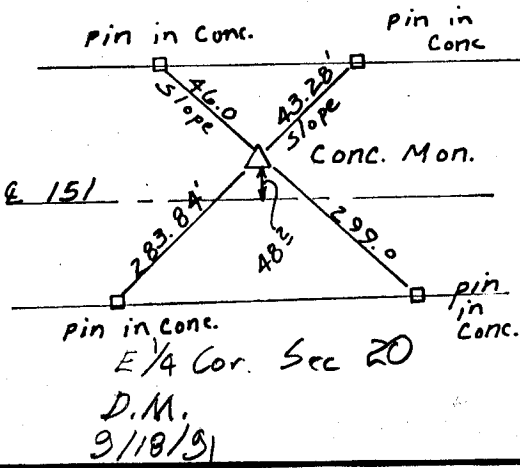 pin in Conc.
pin in
Conc
46.0
Slope
43.28'
Slope
Conc. Mon.
℄ 151
283.84'
48"
299.0
pin in conc.
pin
in
Conc.
E 1/4 Cor. Sec 20
D.M.
9/18/91